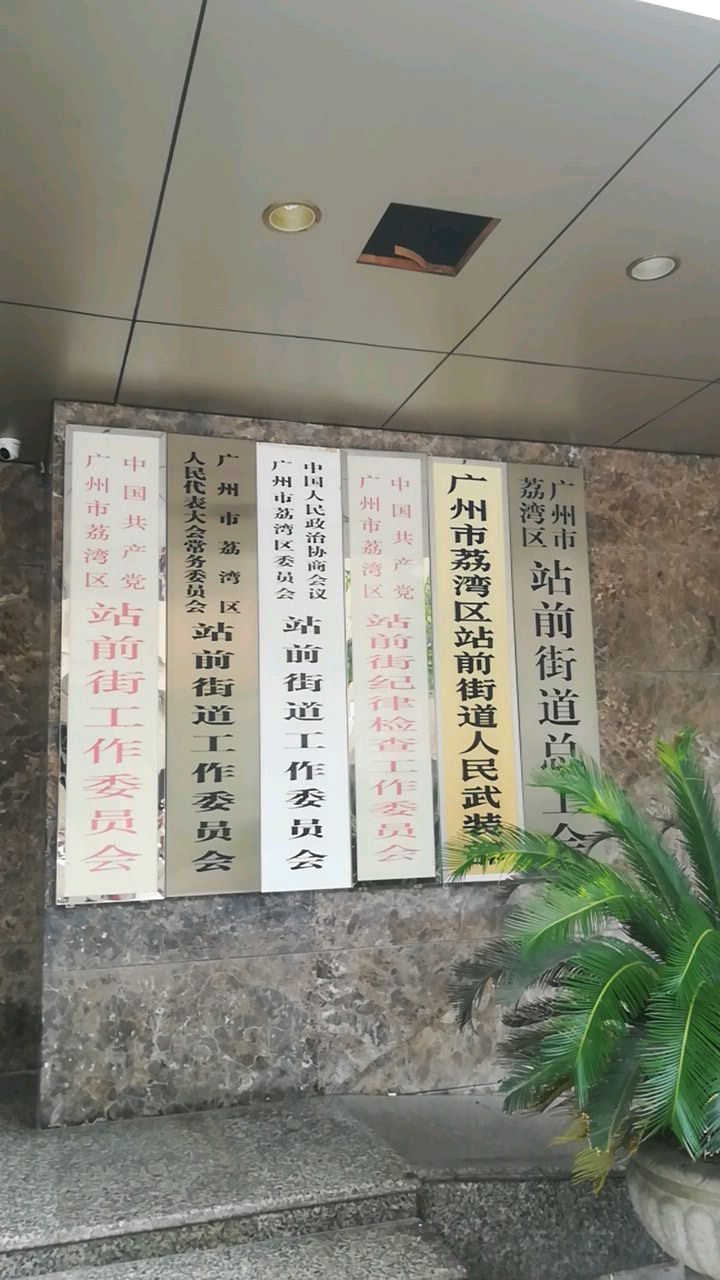 中国共产党
广州市荔湾区
站前街工作委员会
广州市荔湾区
人民代表大会常务委员会
站前街道工作委员会
中国人民政治协商会议
广州市荔湾区委员会
站前街道工作委员会
中国共产党
广州市荔湾区
站前街纪律检查工作委员会
广州市荔湾区站前街道人民武装
广州市
荔湾区
站前街道总工会